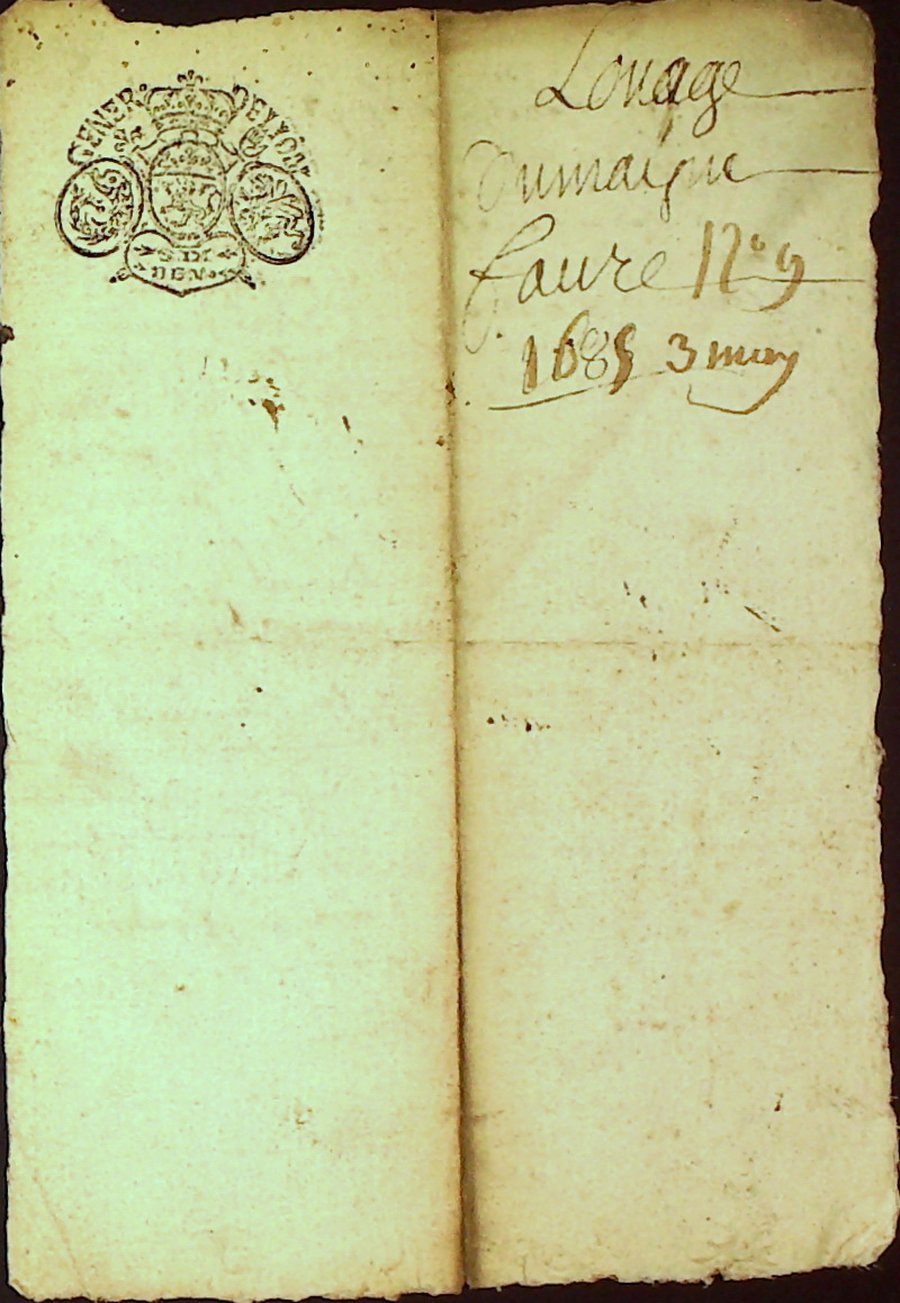 GENER. DE LYON
SIX
DEN.
Louage
Dumaigne
faure N.º 9
1685 3 may